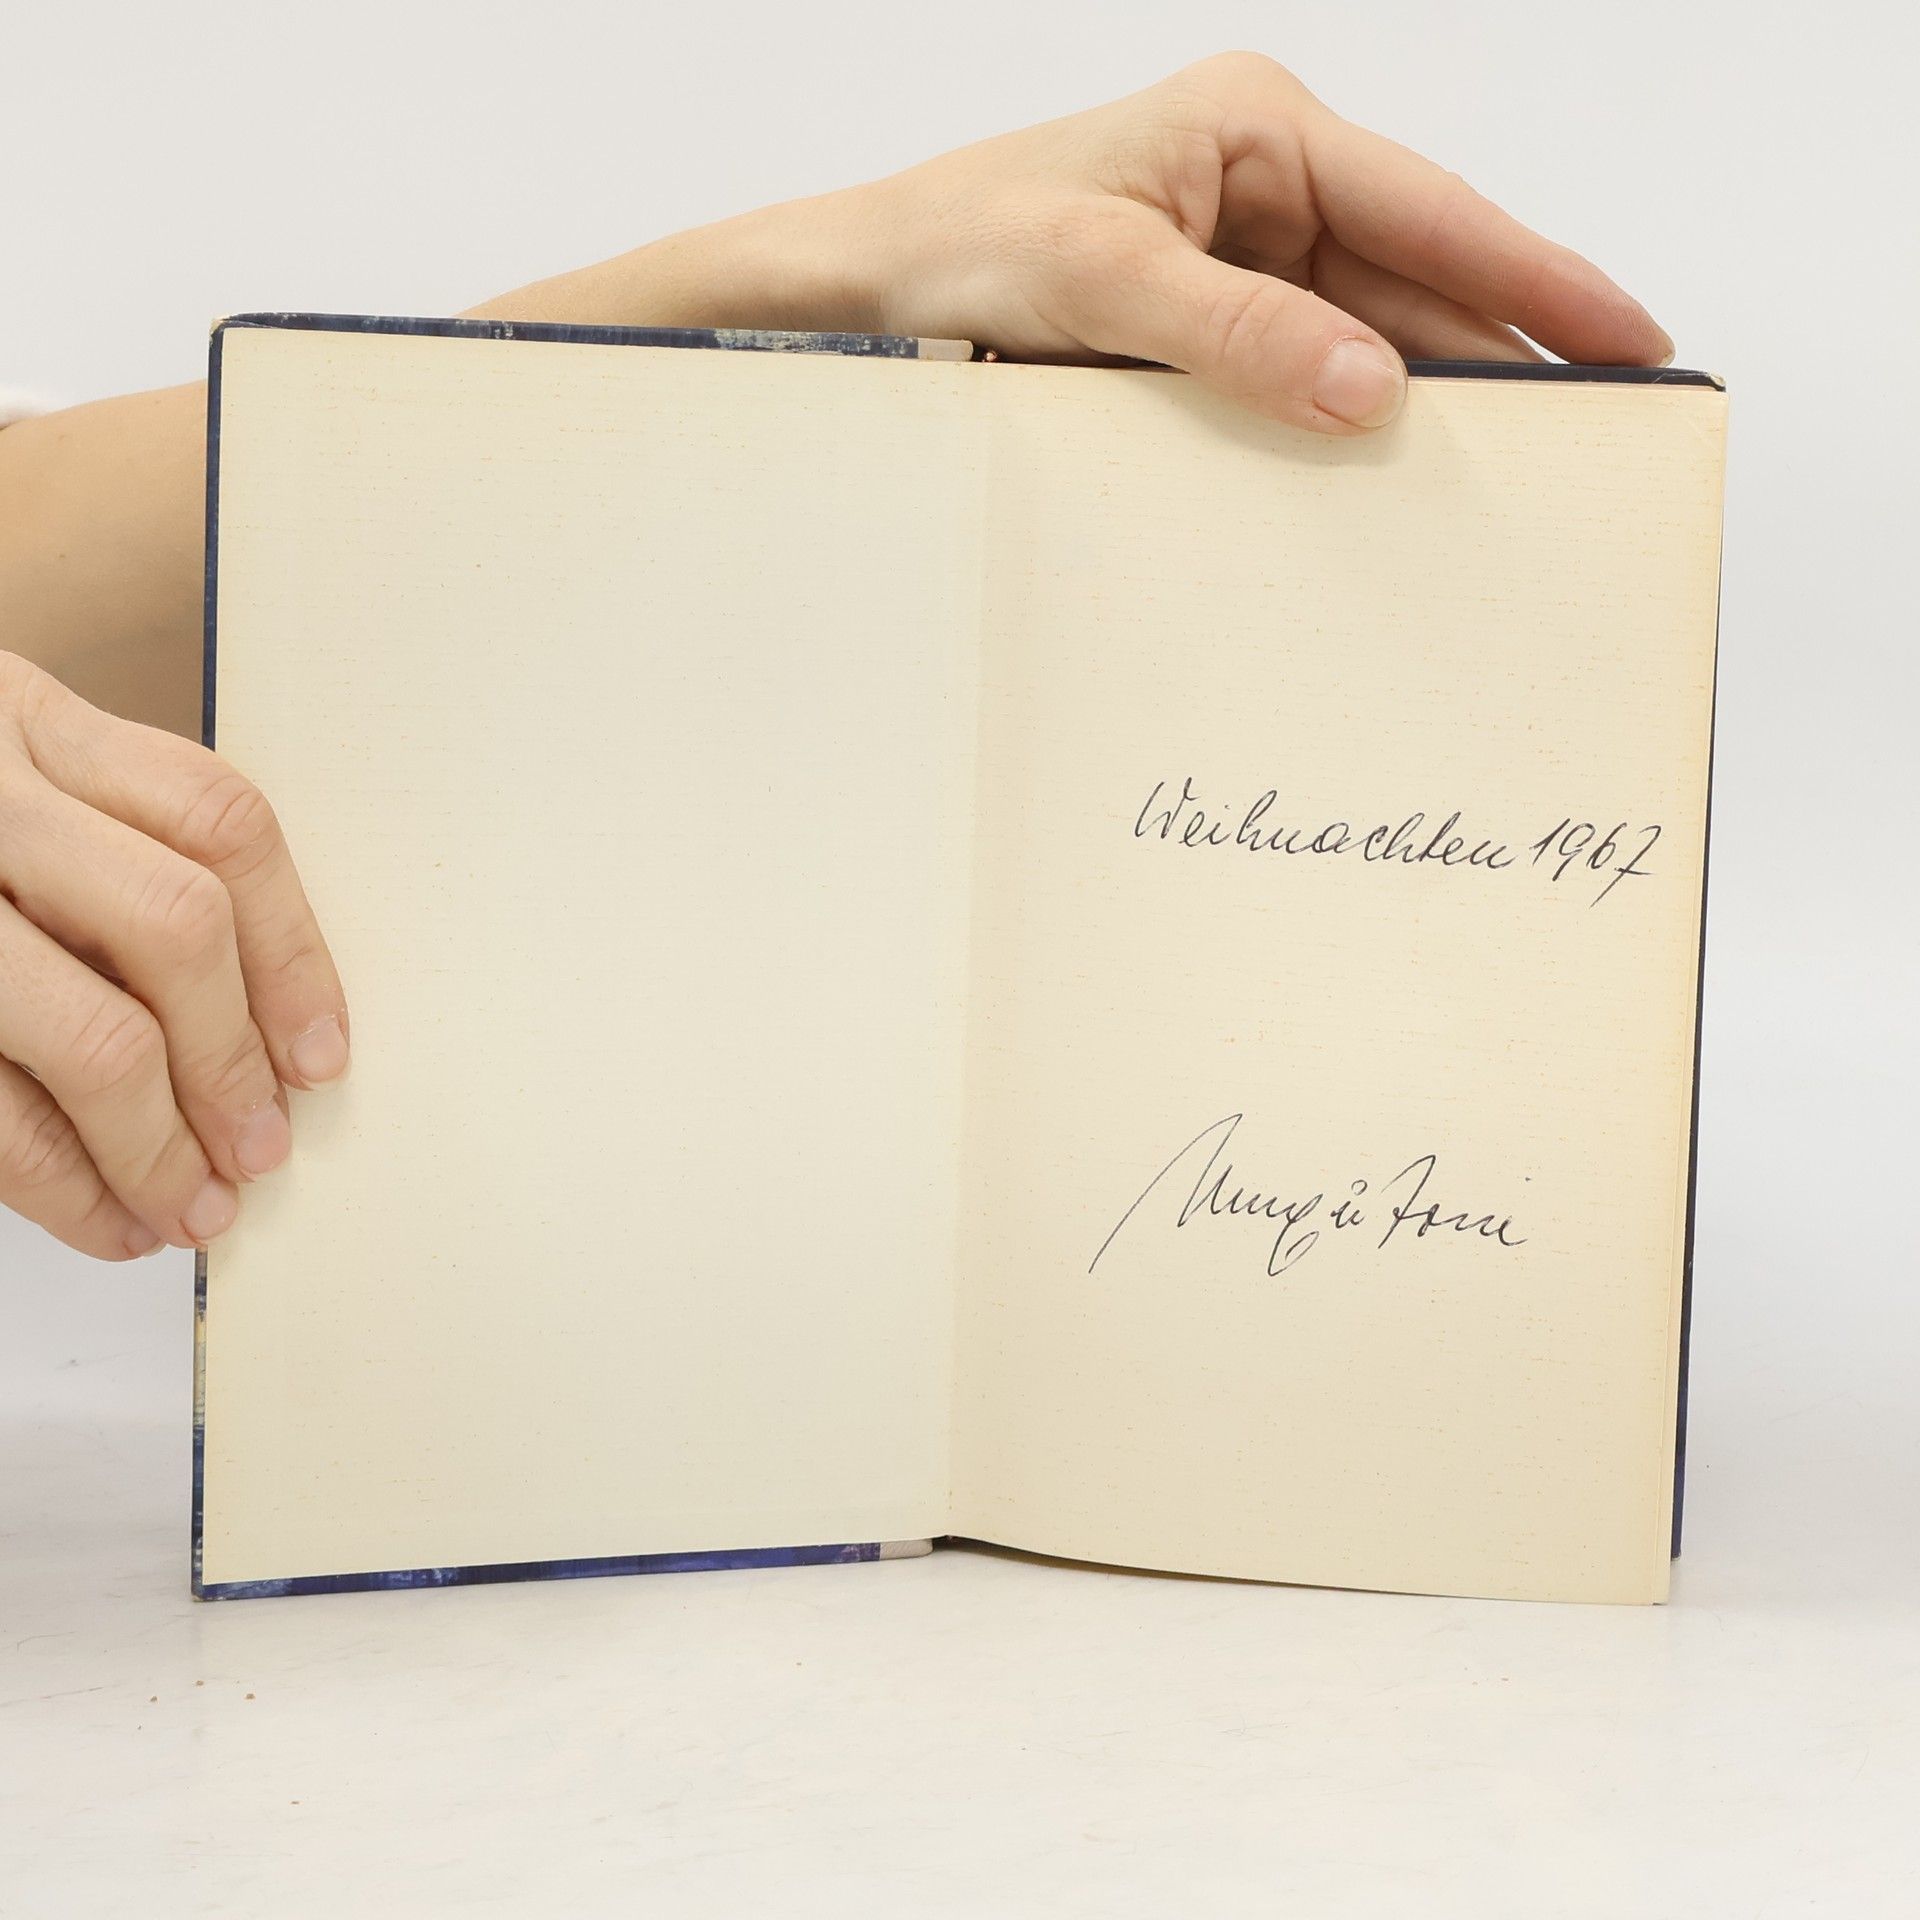 Weihnachten 1967
u Toni